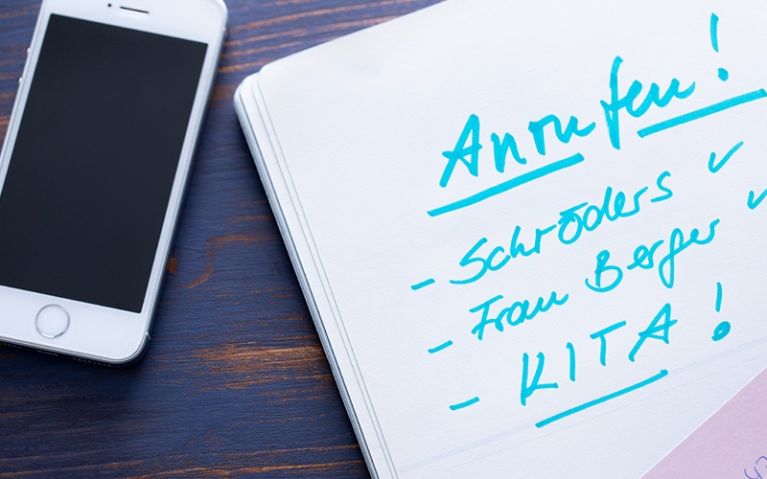 Anrufen!
- Schröders ✓
- Frau Berger ✓
- KITA!